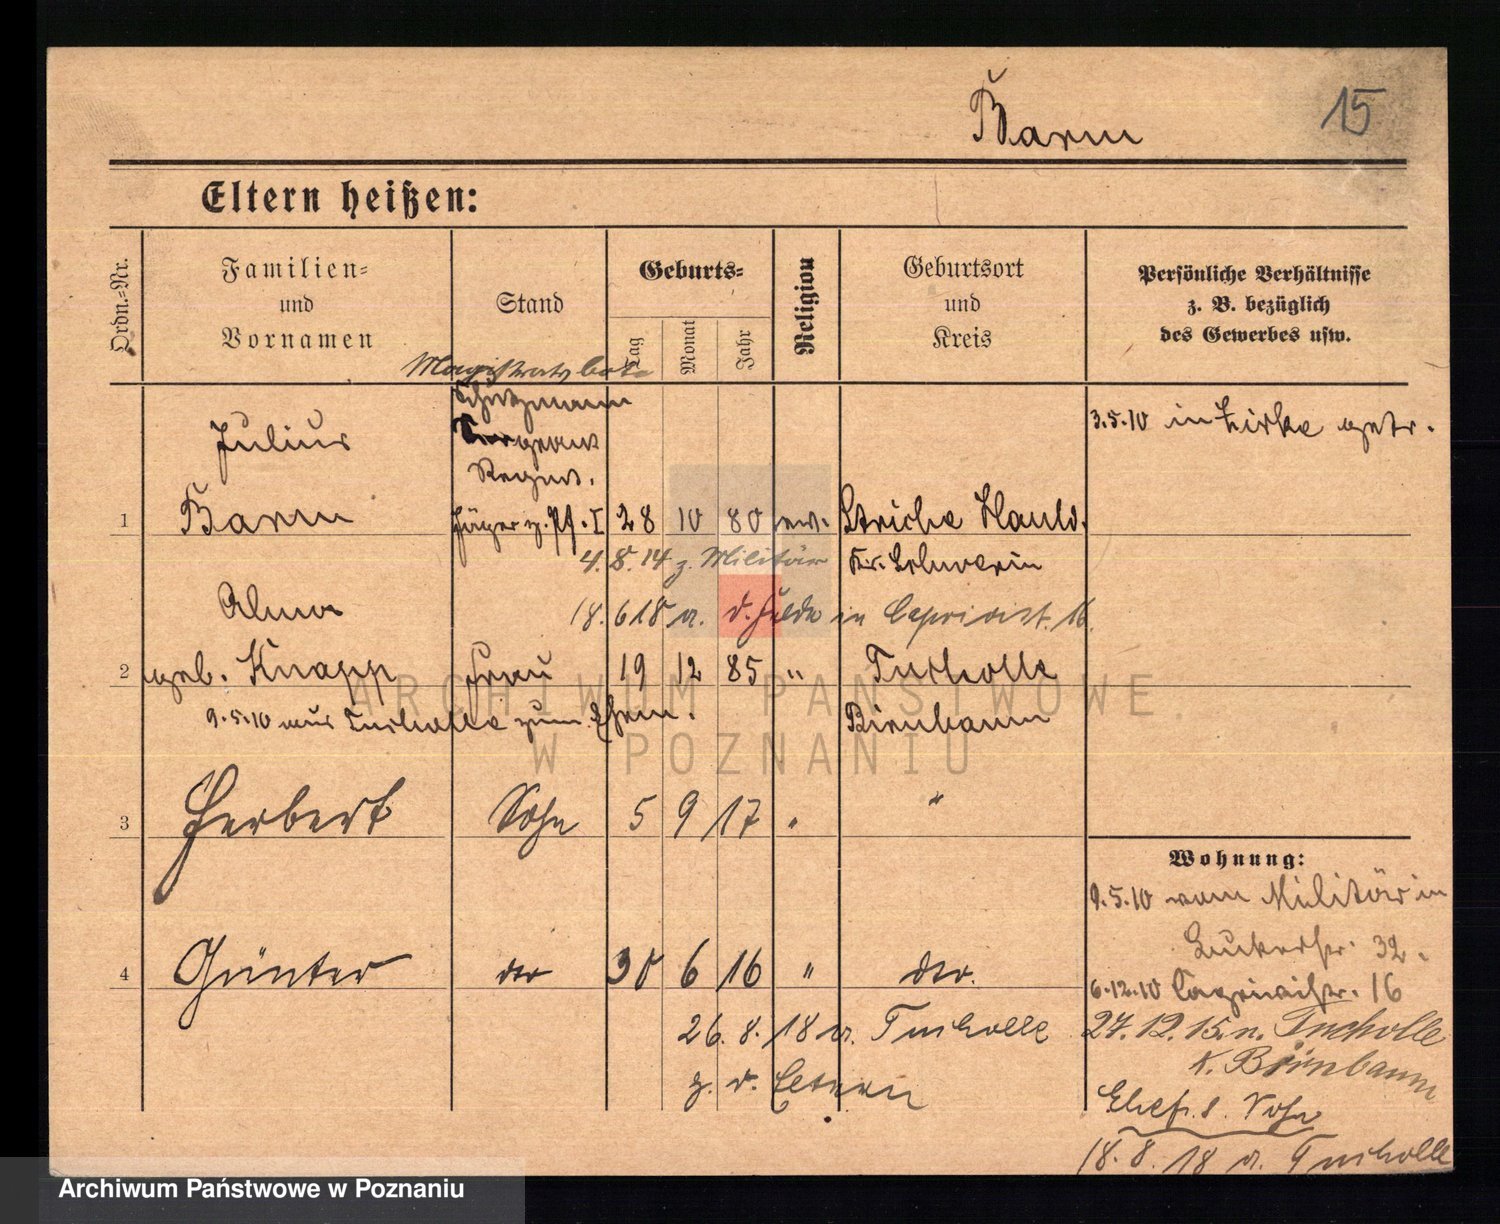 15
Barm
Eltern heißen:
Ordn.=Nr.
Familien=
und
Vornamen
Stand
Geburts=
Tag
Monat
Jahr
Religion
Geburtsort
und
Kreis
Persönliche Verhältnisse
z. B. bezüglich
des Gewerbes usw.
Magistratsbote
Schutzmann
Julius
Sergeant
3.5.10 in Zirke getr.
Regmt.
1 Barm Jäger z. Pf. I 28 10 80 ev. Striche Hauld.
4.8.14 z. Militär Kr. Schwerin
Alma
18.6.18 a. d. Felde in Caprivist. 16.
2 geb. Knapp Frau 19 12 85 " Tucholle
9.5.10 aus Tucholle zum Ehem. Birnbaum
3 Herbert Sohn 5 9 17 " "
Wohnung:
9.5.10 vom Militär in
32.
4 Günter der 30 6 16 " der.
6.12.10 Caprivistr. 16
26.8.18 a. Tucholle
27.12.15 n. Tucholle
K. Birnbaum
z. d. Eltern
Ehefr. u. Sohn
18.8.18 a. Tucholle
ARCHIWUM PAŃSTWOWE
W POZNANIU
Archiwum Państwowe w Poznaniu